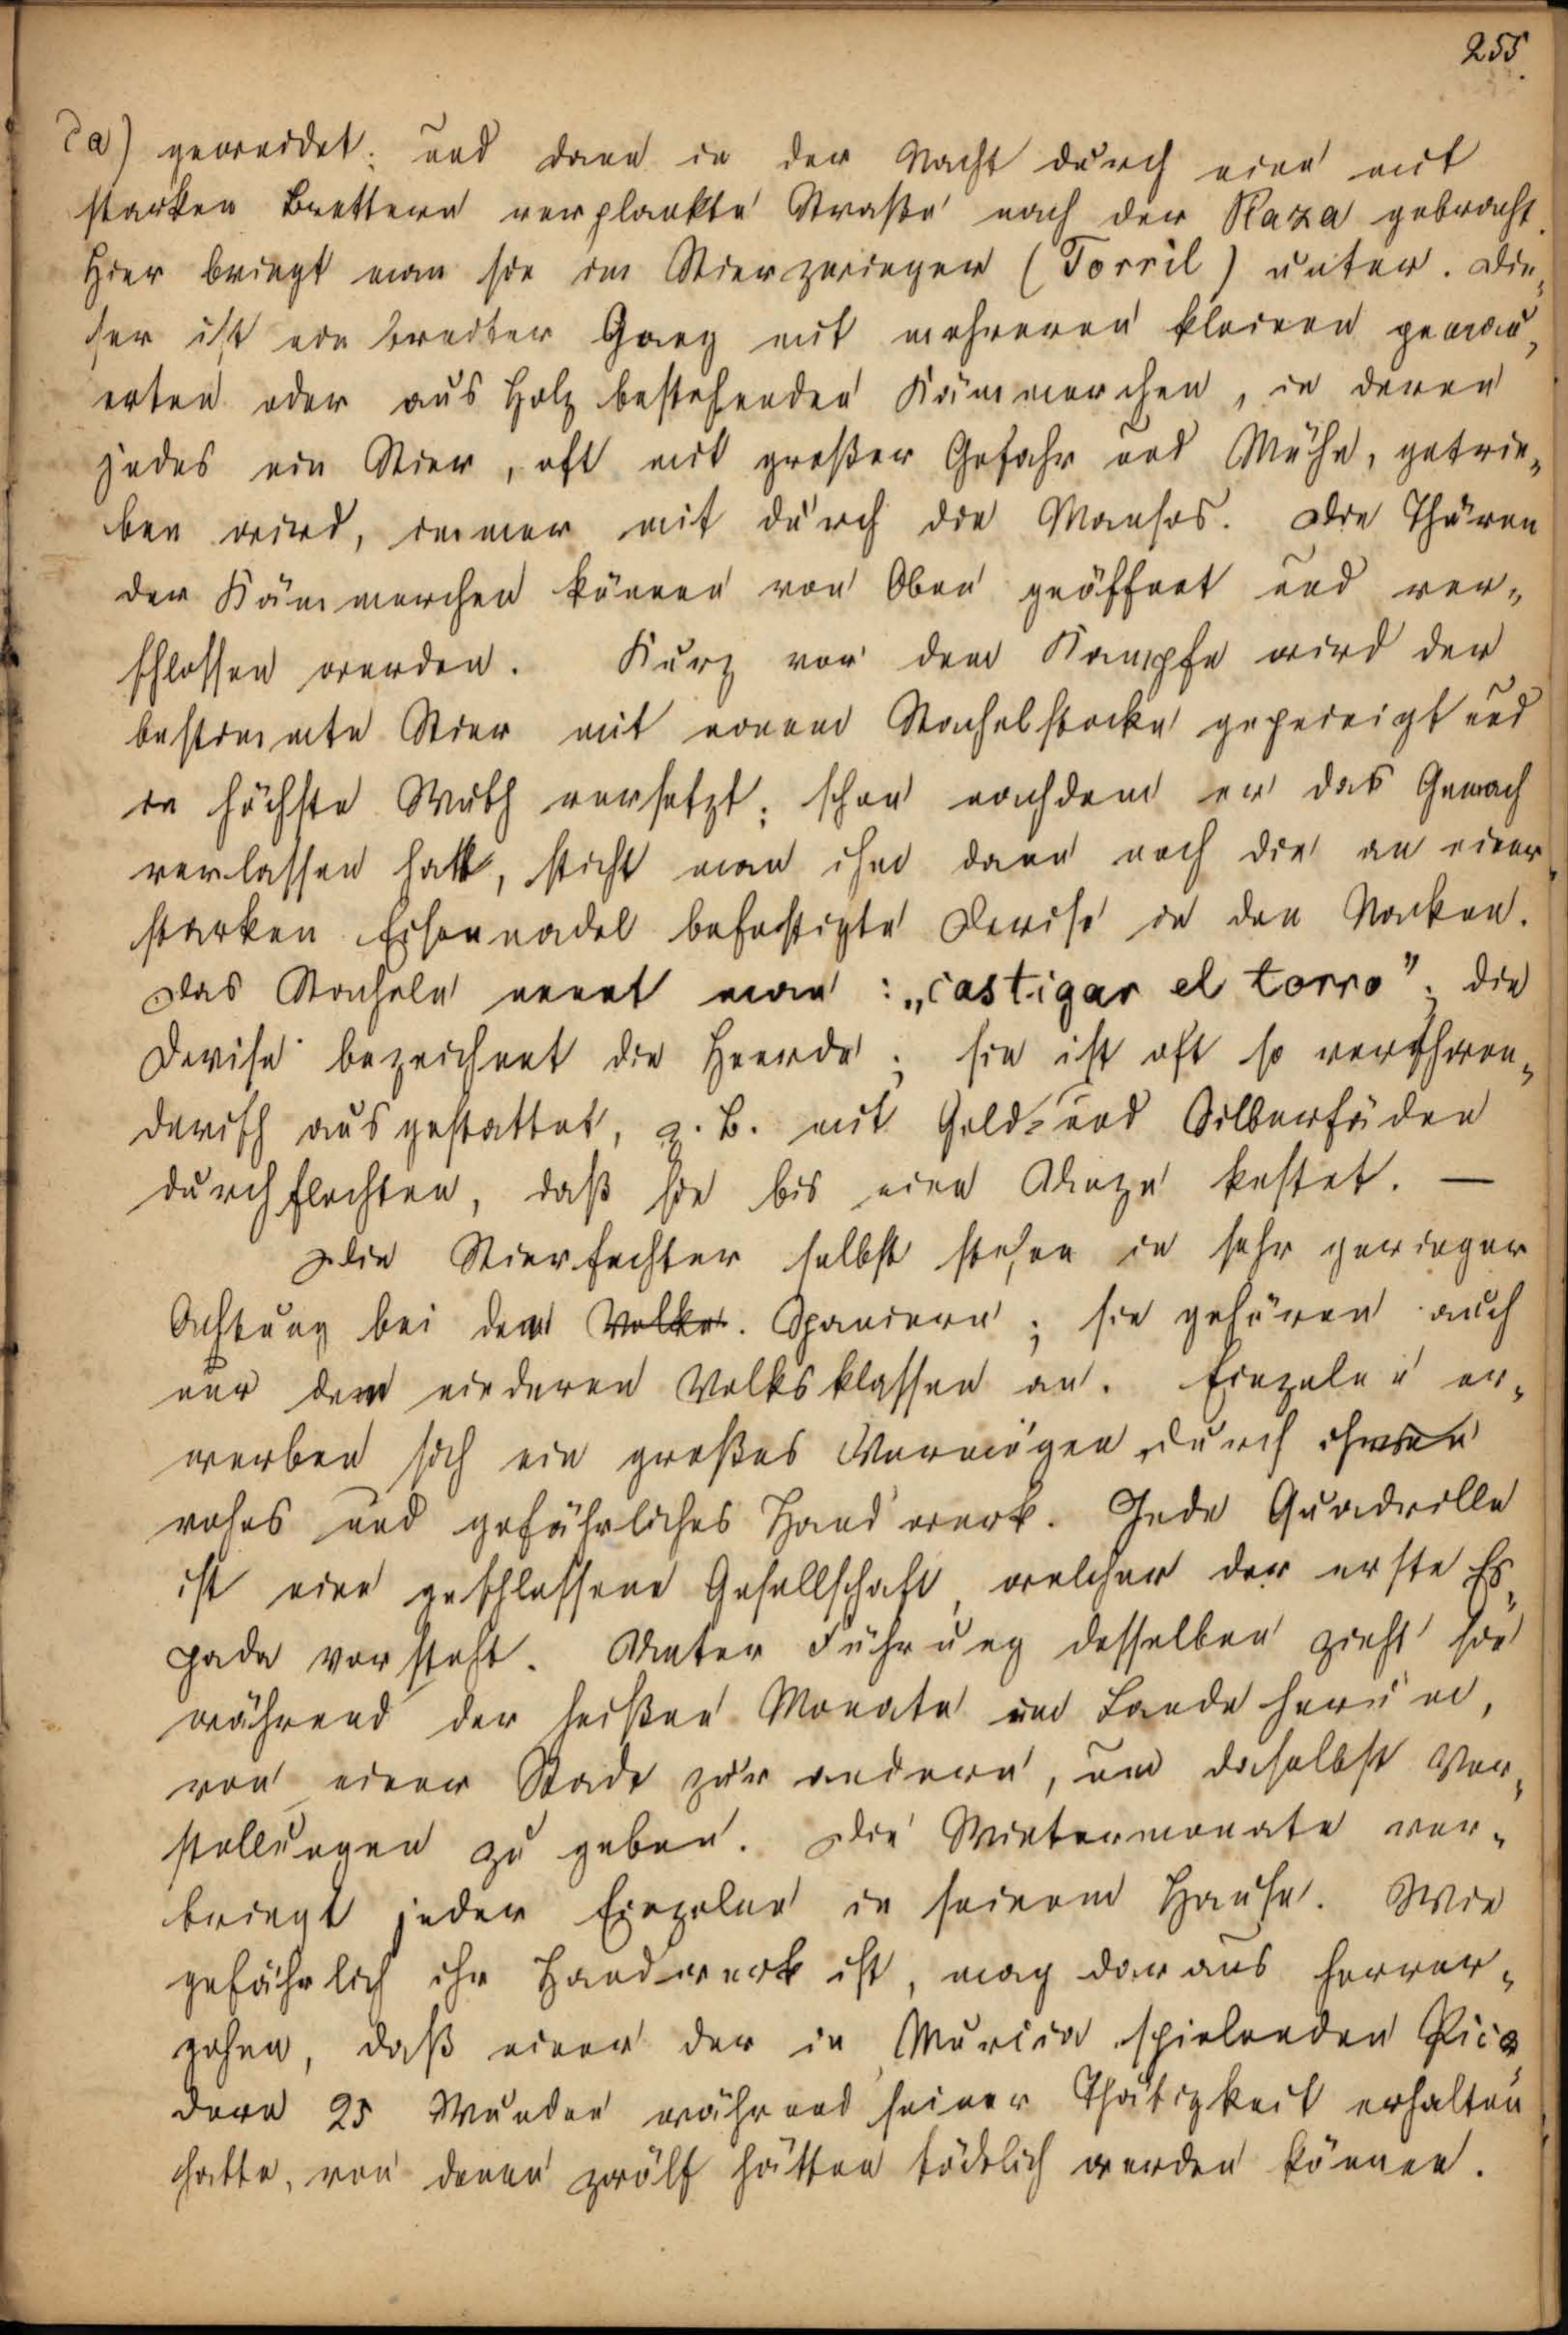 255.
da) geweidet; und dann in der Nacht durch eine mit
starken Brettern verplankte Straße nach der Plaza gebracht.
Hier bringt man sie im Stierzwinger (Torril) unter. Die„
ser ist ein breiter Gang mit mehreren kleinen gemau„
erten oder aus Holz bestehenden Kämmerchen, in deren
jedes ein Stier, oft mit großer Gefahr und Mühe, getrie„
ben wird, immer mit durch die Mansos. Die Thüren
der Kämmerchen können von Oben geöffnet und ver„
schlossen werden. Kurz vor dem Kampfe wird der
bestimmte Stier mit einem Stachelstocke gepeinigt und
in höchste Wuth versetzt; schon nachdem er das Gemach
verlassen hatt, sticht man ihm dann noch die an einer
starken Eisennadel befestigte Devise in den Nacken.
Das Stacheln nennt man: „castigar el torro”; die
Devise bezeichnet die Heerde; sie ist oft so verschwen„
derisch ausgestattet, z. B. mit Gold- und Silberfäden
durchflochten, daß sie bis eine Unze kostet. —
Die Stierfechter selbst stehen in sehr geringer
Achtung bei den Volke. Spaniern; sie gehören auch
nur den niederen Volksklassen an. Einzelne er„
werben sich ein großes Vermögen durch ihr
rohes und gefährliches Handwerk. Jede Quadrille
ist eine geschlossene Gesellschaft, welcher der erste Es„
pada vorsteht. Unter Führung desselben zieht sie
während der heißen Monate im Lande herum,
von einer Stadt zur andern, um daselbst Vor„
stellungen zu geben. Die Wintermonate ver„
bringt jeder Einzelne in seinem Hause. Wie
gefährlich ihr Handwerk ist, mag daraus hervor„
gehen, daß einer der in Murcia spielenden Pica„
dore 25 Wunden während seiner Thätigkeit erhalten
hatte, von denen zwölf hätten tödtlich werden können.